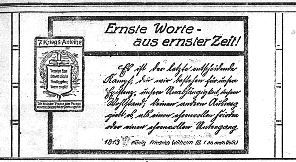 7. Kriegs-Anleihe
Ernste Worte -
aus ernster Zeit!
Es ist der letzte entscheidende
Kampf, den wir bestehen für unsere
Existenz, unsere Unabhängigkeit, unsern
Wohlstand; keinen andern Ausweg
gibt es, als einen ehrenvollen Frieden
oder einen Untergang.
1813 König Friedrich Wilhelm III. (An mein Volk)